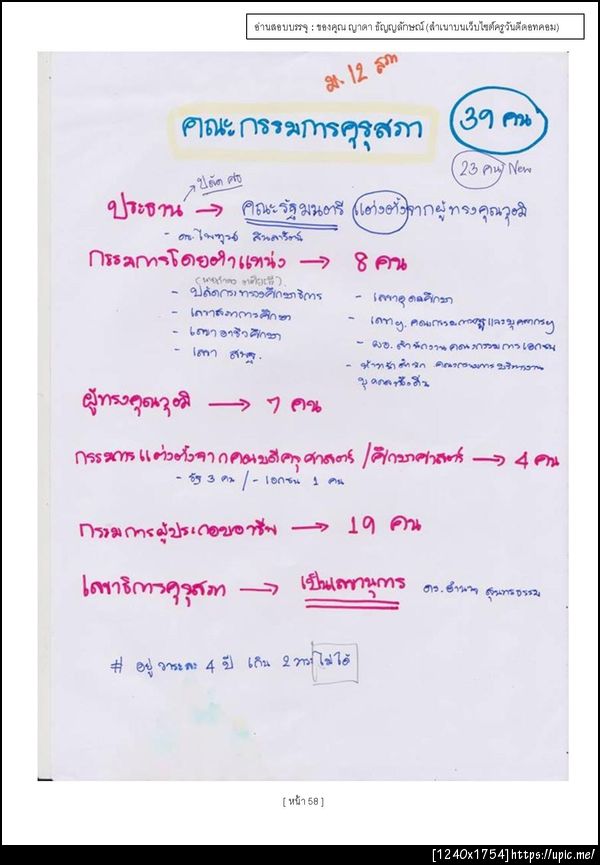 อ่านสอบบรรจุ : ของคุณ ญาดา ธัญญลักษณ์ (สำเนาบนเว็บไซต์ครูวันดีดอทคอม)
ม.12 สภ
คณะกรรมการคุรุสภา 39 คน
23 คน New
ปลัด ศธ
ประธาน → คณะรัฐมนตรี แต่งตั้งจากผู้ทรงคุณวุฒิ
- ดร.ไพฑูรย์ สินลารัตน์
กรรมการโดยตำแหน่ง → 8 คน
- ปลัดกระทรวงศึกษาธิการ
- เลขาสภาการศึกษา
- เลขาอาชีวศึกษา
- เลขา สพฐ.
- เลขาอุดมศึกษา
- เลขาฯ. คณะกรรมการครูและบุคลากรฯ
- ผอ. สำนักงานคณะกรรมการเอกชน
- หัวหน้าสำนัก คณะกรรมการบริหารงาน
บุคคลท้องถิ่น
ผู้ทรงคุณวุฒิ → 7 คน
กรรมการแต่งตั้งจากคณบดีครุศาสตร์/ศึกษาศาสตร์ → 4 คน
- รัฐ 3 คน / - เอกชน 1 คน
กรรมการผู้ประกอบอาชีพ → 19 คน
เลขาธิการคุรุสภา → เป็นเลขานุการ ดร.อำนาจ สุนทรธรรม
# อยู่วาระละ 4 ปี เกิน 2 วาระ ไม่ได้
[ หน้า 58 ]
[1240x1754]https://upic.me/